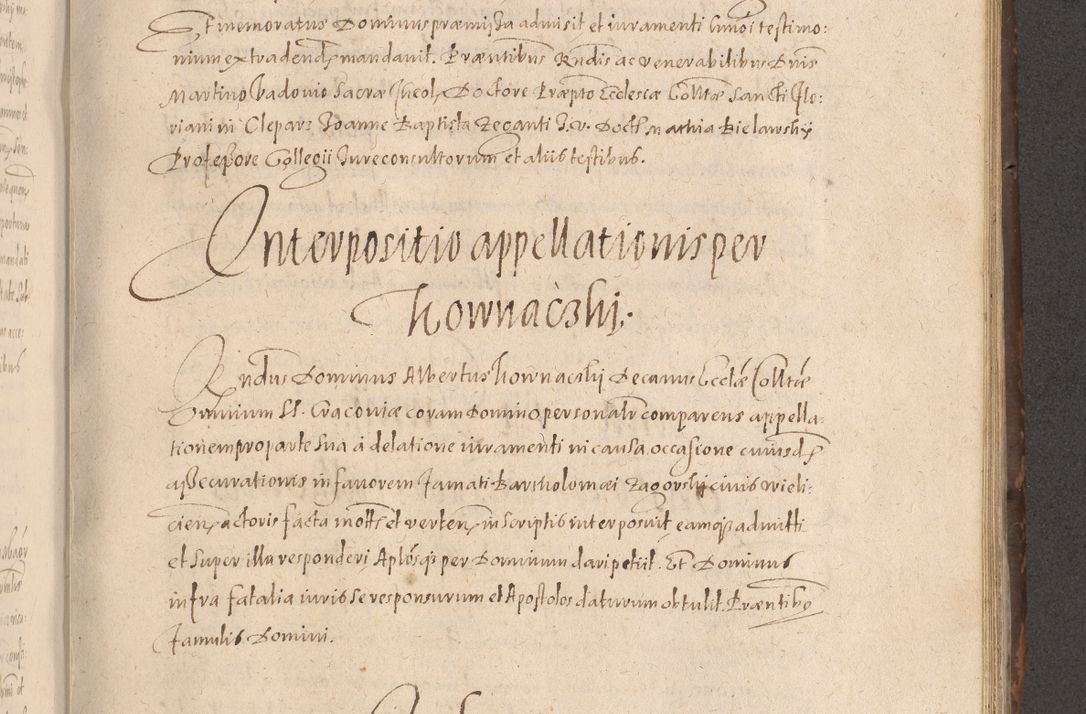 Et memoratus Dominus præmissa admisit et iuramenti huius testimo:
nium extradend mandavit. Præntibus Rndis ac venerabilibus Dnis
Martino Vadovio Sacræ Theol. Doctore Præpto Ecclesiæ Colltæ Sancti Flo:
riani in Clepars Joanne Baptista Zeganti J. V. Doct. Mathia Bielawsky
Professore Collegii Jureconsultorum et aliis testibus.
Interpositio appellationis per
Kownaczki.
Rndus Dominus Albertus Kownaczkij Decanus Eccliæ Colltæ
Omnium SS. Cracoviæ coram Domino personalr comparens appella:
tionem pro parte sua à delatione iuramenti in causa occasione cuiusd
assecurationis in favorem famati Bartholomæi Zagorski civis Wieli:
cien actoris facta in ... et verten in scriptis interposuit, eamq admitti
et super illa responderi Aplosq per Dominum dari petiit. Et Dominus
infra fatalia iuris se responsurum et Apostolos daturum obtulit. Præntibus
famulis Domini.